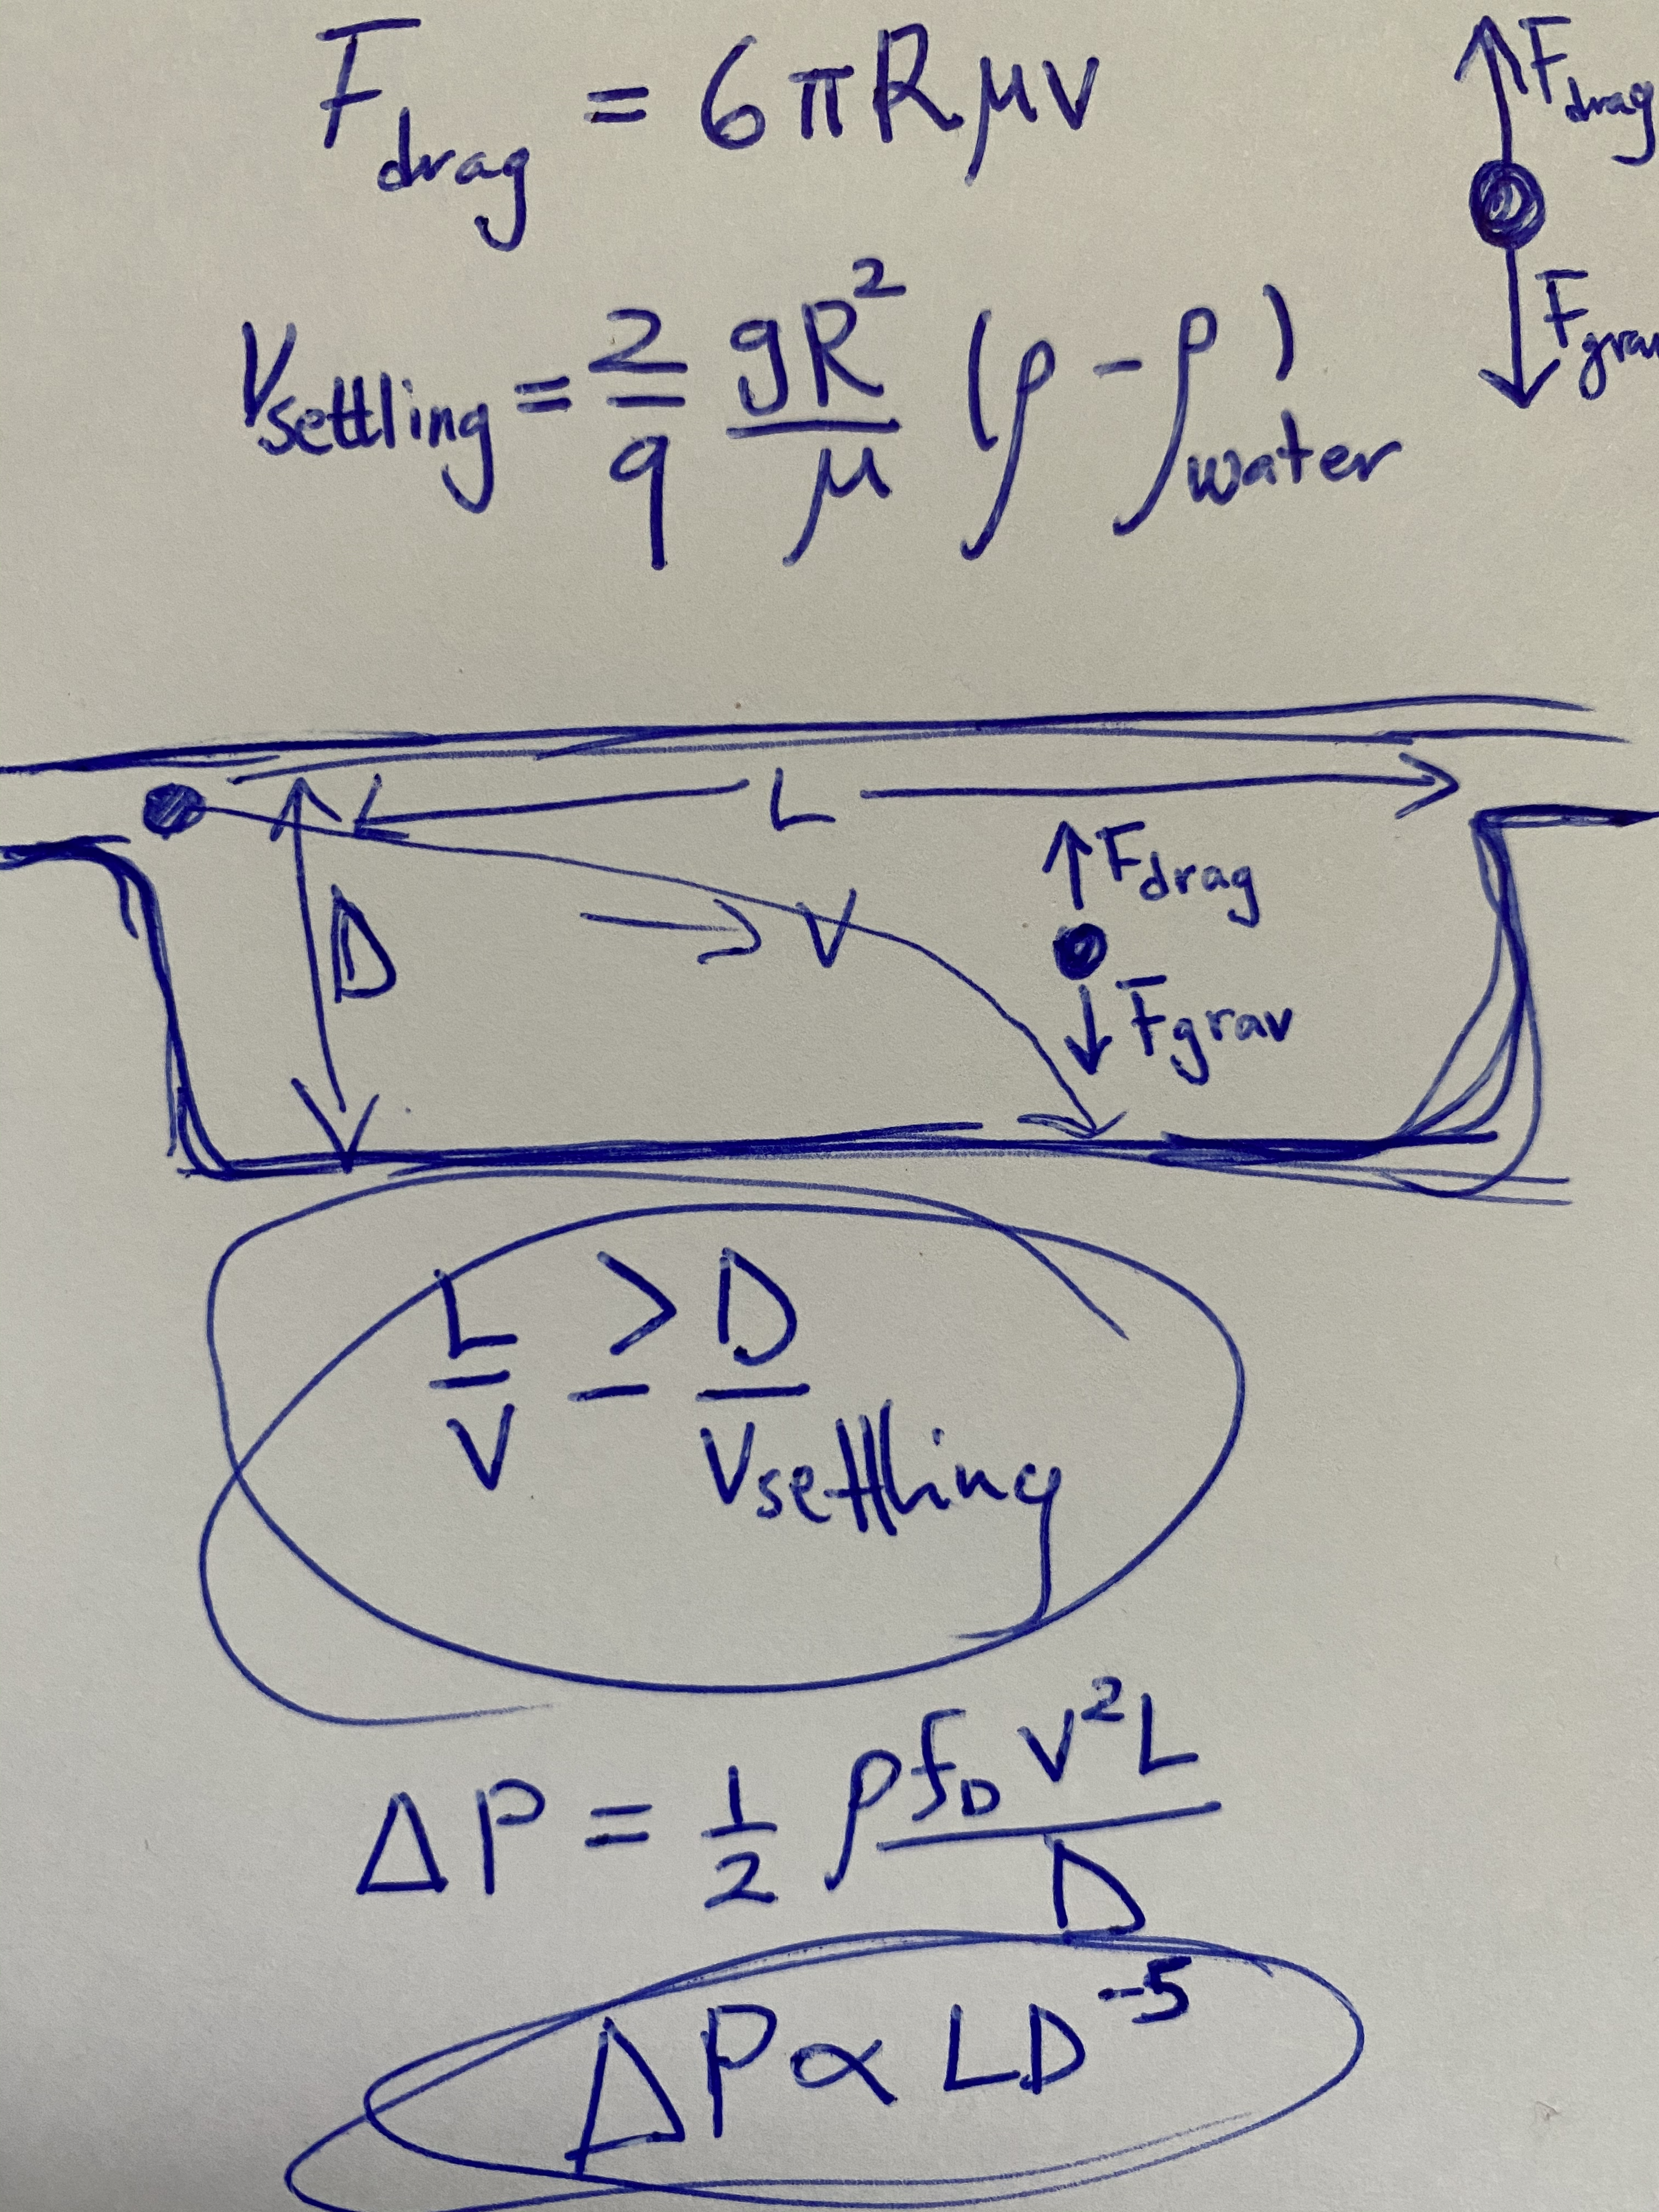 F_drag = 6πRμv
F_drag
F_grav
V_settling = 2/9 gR²/μ (ρ - ρ_water)
L
D
V
F_drag
F_grav
L/V ≥ D/V_settling
ΔP = 1/2 ρ f_D V² L / D
ΔP ∝ LD⁻⁵